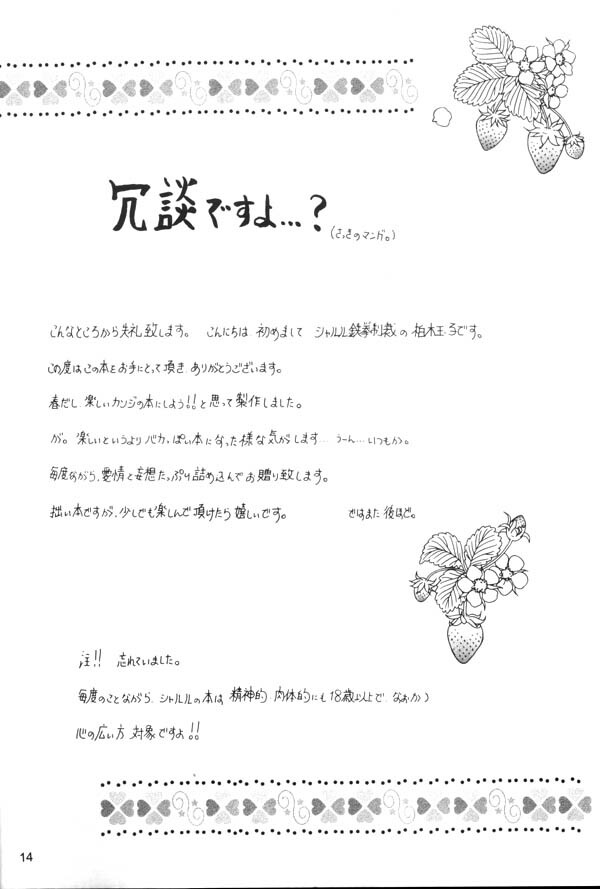 冗談ですよ…?
(さっきのマンガ。)
こんなところから失礼致します。 こんにちは 初めまして シャルル鉄拳制裁の 柏木王子です。
この度はこの本をお手にとって頂き ありがとうございます。
春だし、楽しいカンジの本にしよう!!と思って製作しました。
が。楽しいというよりバカっぽい本になった様な気がします… うーん… いつもか。
毎度ながら、愛情と妄想たっぷり詰め込んでお贈り致します。
拙い本ですが、少しでも楽しんで頂けたら嬉しいです。 ではまた後ほど。
注!! 忘れていました。
毎度のことながら、シャルルの本は 精神的 肉体的にも18歳以上で、なおかつ
心の広い方 対象ですよ!!
14